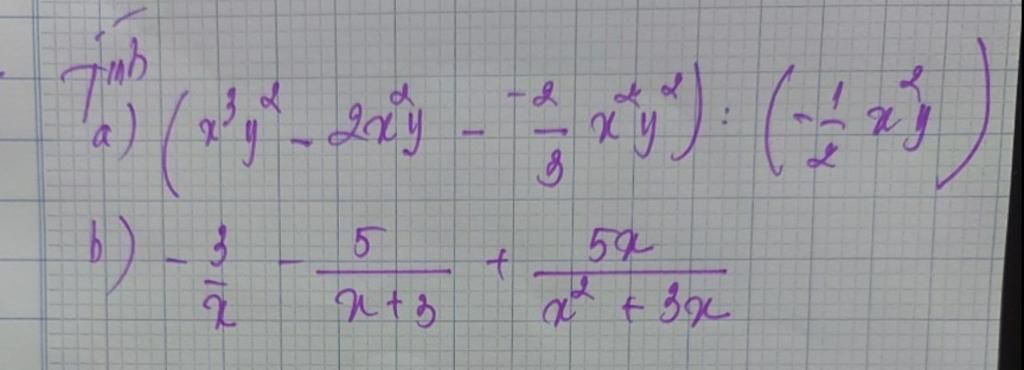 Tính
a) (x³y² - 2x²y - -2/3 x²y²) : (-1/2 x²y)
b) -3/x - 5/(x+3) + 5x/(x² + 3x)